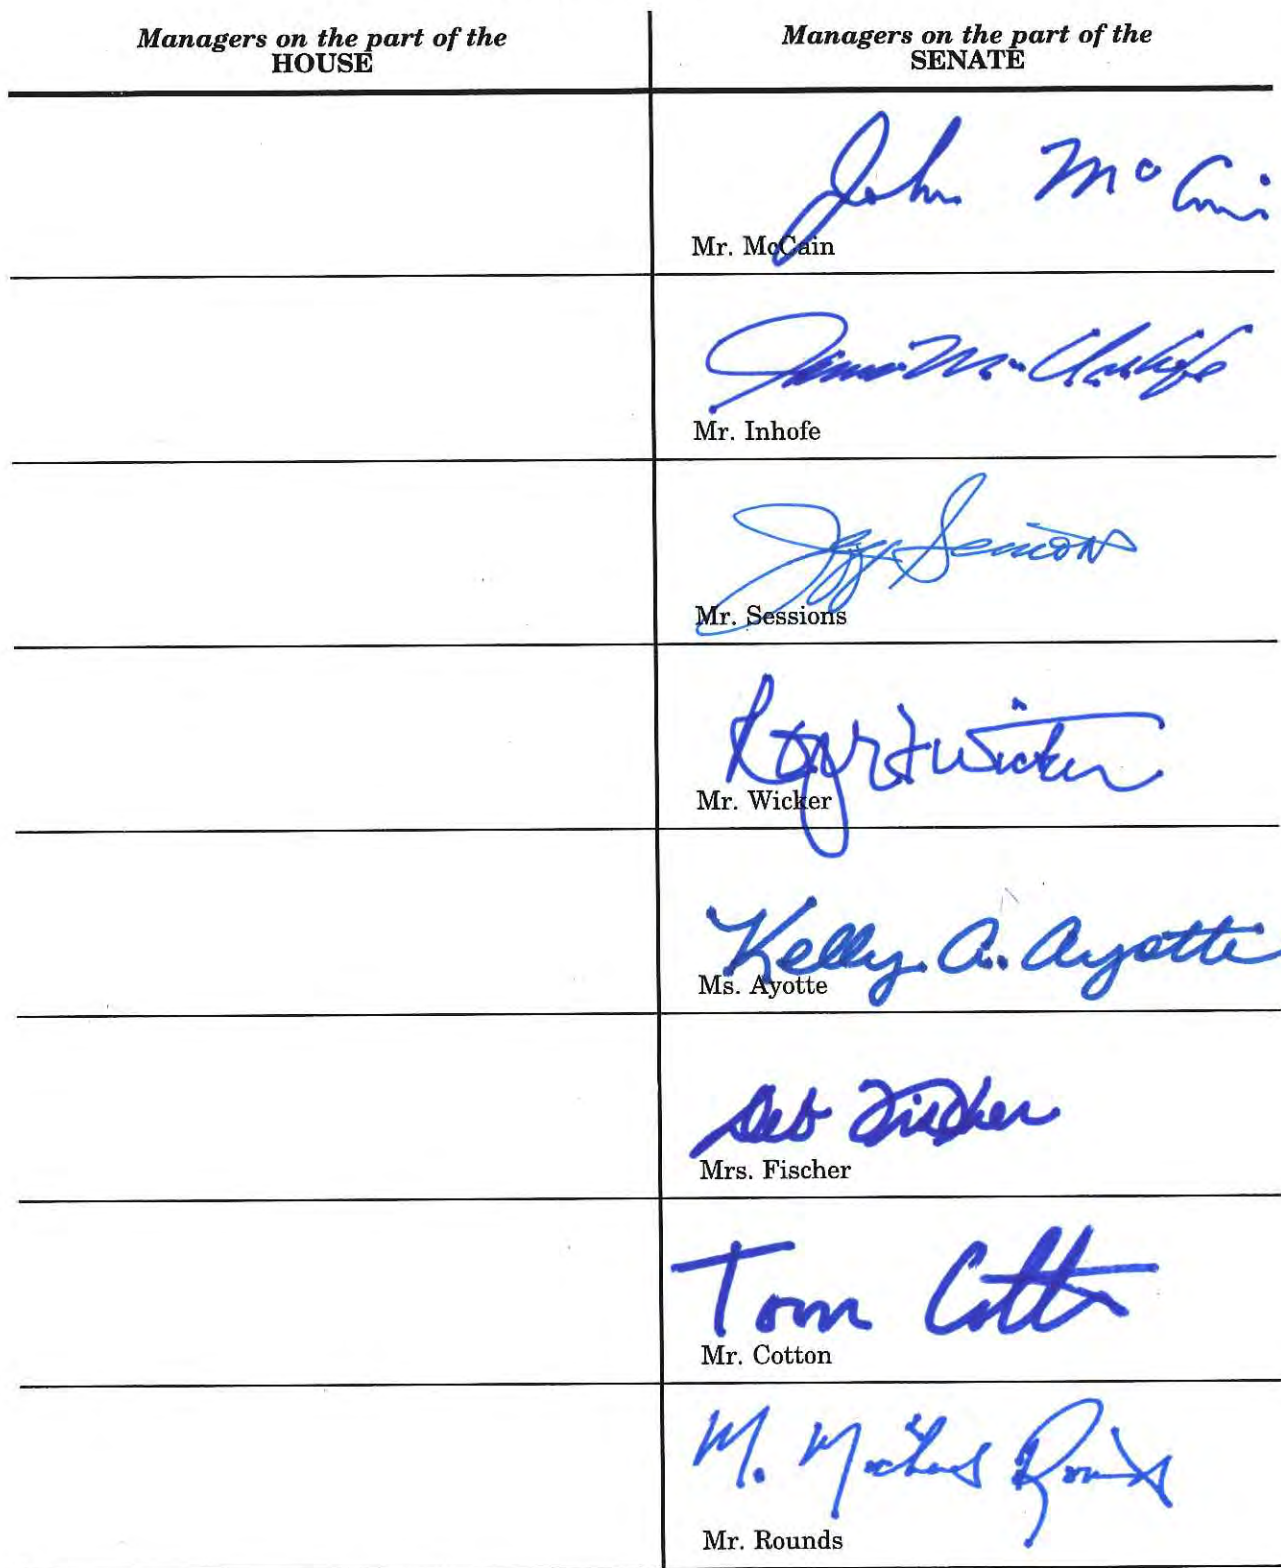 Managers on the part of the
HOUSE
Managers on the part of the
SENATE
John McCain
Mr. McCain
James M. Inhofe
Mr. Inhofe
Jeff Sessions
Mr. Sessions
Roger F Wicker
Mr. Wicker
Kelly A. Ayotte
Ms. Ayotte
Deb Fischer
Mrs. Fischer
Tom Cotton
Mr. Cotton
M. Michael Rounds
Mr. Rounds